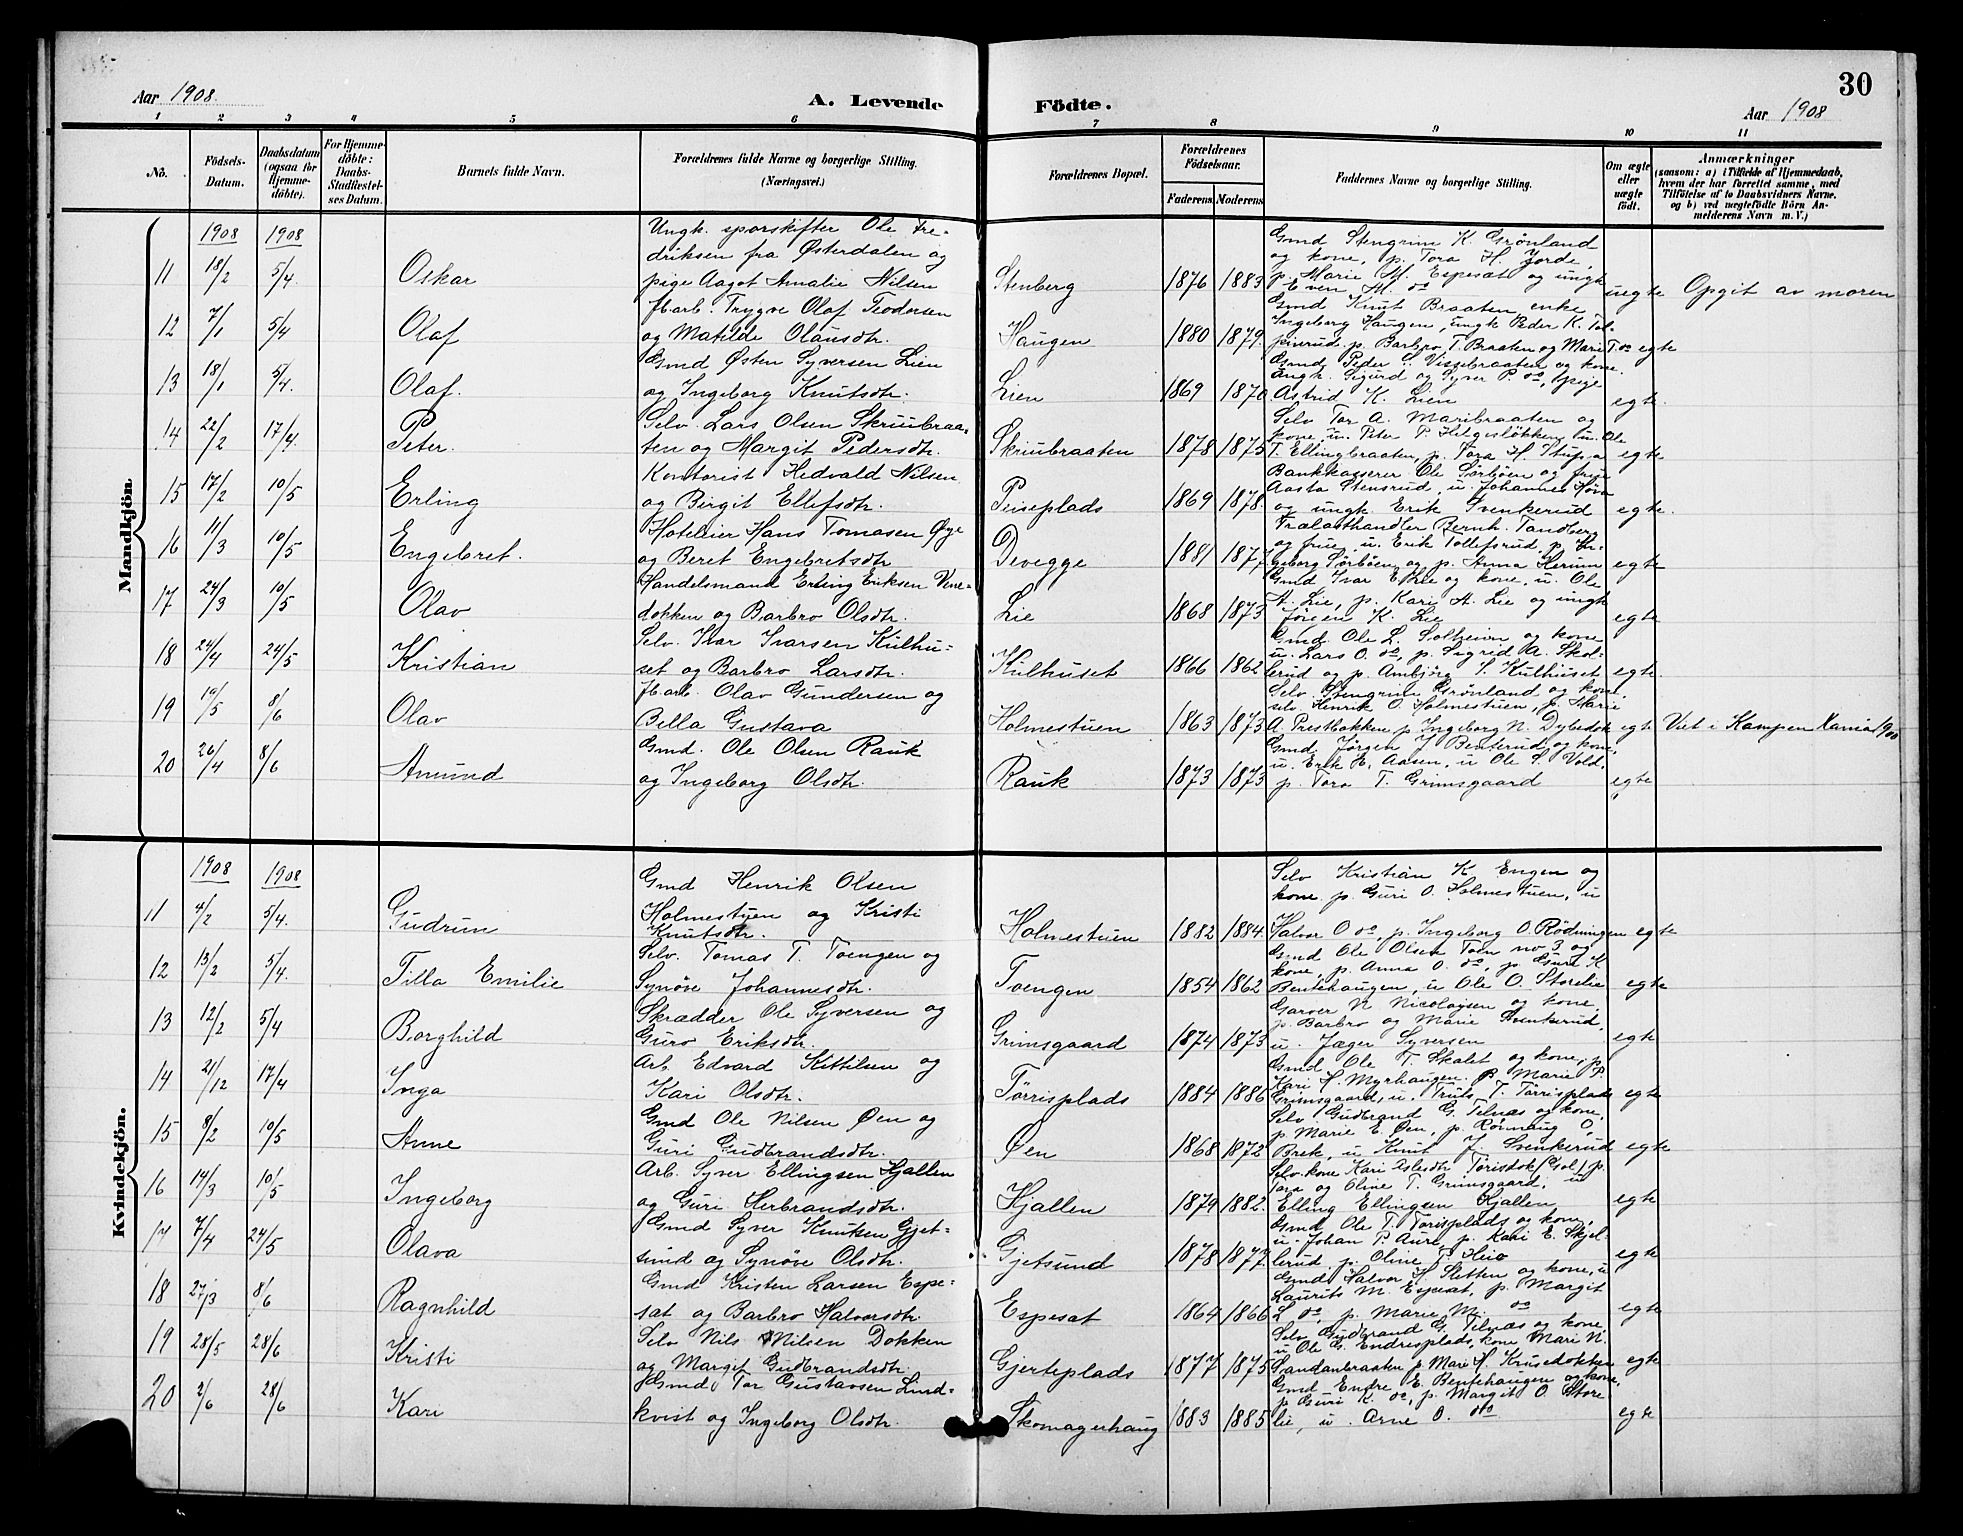 30
Aar 1908.
A. Levende Födte.
Aar 1908
1 2 3 4 5 6 7 8 9 10 11
No.
Födsels-Datum.
Daabsdatum (ogsaa for Hjemmedöbte).
For Hjemmedöbte: Daabs-Stadfæstelses Datum.
Barnets fulde Navn.
Forældrenes fulde Navne og borgerlige Stilling.
(Næringsvei.)
Forældrenes Bopæl.
Forældrenes Födselsaar.
Faderens Moderens
Faddernes Navne og borgerlige Stilling.
Om ægte eller uægte født.
Anmærkninger
(saasom: a) i Tilfælde af Hjemmedaab,
hvem der har forrettet samme, med
Tilföielse af to Daabsvidners Navne.
og b) ved uægtefödte Börn An-
melderens Navn m. V.)
Mandkjön
1908 1908
11 18/2 5/4. Oskar
Ungk. sporskifter Ole Fre-
driksen fra Østerdalen og
pige Aagot Amalie Nilsen
Stenberg 1876 1883
Gmd Stengrim K. Grønland
og kone, p. Tora H. Jorde,
p. Marie M. Espesæt og ungk
Even M. do
uegte Opgit av moren
12 7/1 5/4 Olaf
Harb. Trygve Olaf Teodorsen
og Matilde Olausdtr.
Haugen 1880 1879.
Gmd Knut Braaten, enke
Ingeborg Haugen, ungk Peder K. Tol-
peinrud, p. Barbro T. Braaten og Mari T. do
egte
13 18/1 5/4. Olaf.
Gmd Østen Syversen Lien
og Ingeborg Knutsdtr.
Lien 1869 1870
Gmd Peder S. Vissebraaten og kone.
ungk. Sigurd og Syver P. do, pige
Astrid K. Lien
egte.
14 22/2 17/4. Peter.
Selv. Lars Olsen Skriubraa-
ten og Margit Pedersdtr.
Skriubraaten 1878 1875
Selv Tor A. Maribraaten og
kone, u. Peter P. Helgesløkken, u. Ole
T. Ellingbraaten, p. Tora H. Stupa
egte
15 17/2 10/5 Erling
Kontorist Hedvald Nilsen
og Birgit Ellefsdtr.
Peiseplads 1869 1878.
Bankkasserer Ole Sørbøen og frue
Aasta Stensrud, u. Johannes
og ungk. Erik Svenkerud
egte.
16 11/3 10/5 Engebret.
Hoteleier Hans Tomasen Øye
og Beret Engebretsdtr
Devegge 1881 1877
Trælasthandler Bernh. Tandberg
og frue, u. Erik Tollefsrud, p. In-
geborg Sørbøen og p. Anna Herum
egte
17 24/3 10/5 Olav
Handelsmand Erling Eriksen Vene-
dokken og Barbro Olsdtr.
Lie 1868 1873
Gmd Ivar E. Lie og kone, u. Ole
A. Lie, p. Kari A. Lie og ungk
Jørgen K. Lie
egte
18 24/4 24/5 Kristian
Selv. Ivar Ivarsen Kulhu-
set og Barbro Larsdtr.
Kulhuset 1866 1862
Gmd. Ole L. Solheim og kone
u. Lars O. do, p. Sigrid A. Skol-
lerud og p. Ambjørg I. Kulhuset
egte.
19 19/5 8/6 Olav
Harb. Olav Gundersen og
Bella Gustava
Holmestuen 1863 1873
Selv. Stengrim Grønland og kone,
selv Henrik O. Holmestuen, p. Marie
A. Prestbakken p Ingeborg N. Dybedok
egte Viet i Kampen Xania 1900
20 26/4 8/6 Amund
Gmd. Ole Olsen Rauk
og Ingeborg Olsdtr.
Rauk 1873 1873
Gmd. Jørgen J Benterud og kone,
u. Erik H. Aasen, u Ole S. Vold.
p. Tora T. Grimsgaard
egte
Kvindekjön.
1908 1908
11 4/2 5/4. Gudrun
Gmd Henrik Olsen
Holmestuen og Kristi
Knutsdtr.
Holmestuen 1882 1884.
Selv Kristian K Engen og
kone. p. Guri O. Holmestuen, u
Halvor O do, p. Ingeborg O. Rødningen
egte
12 13/2 5/4. Tilla Emilie
Selv. Tomas T. Toengen og
Synøve Johannesdtr.
Toengen 1854 1862
Gmd Ole Olsen Toen no 3 og
kone, p. Anna O. do, p. Guri K
Bentehaugen, u Ole O. Storelie
egte
13 12/2 5/4 Borghild
Skrædder Ole Syversen og
Guro Eriksdtr.
Grimsgaard 1874 1873
Garver N Nicolaysen og kone,
p. Barbro og Marie Svenkerud,
u. Jæger Syversen
egte
14 21/12 17/4 Inga
Arb. Edvard Kittilsen og
Kari Olsdtr.
Tørrisplads 1884 1886
Gmd Ole T. Skalet og kone, p
Kari H. Myrhaugen. p Marie P.
Grimsgaard, u. Truls T. Tørrisplads
egte
15 8/2 10/5 Anne
Gmd Ole Nilsen Øen og
Guri Gudbrandsdtr.
Øen 1868 1872
Selv. Gudbrand G. Tilnæs og kone,
p. Marie E. Øen, p. Rønnaug O,
Brek, u. Knut J. Svenkerud
egte
16 14/3 10/5 Ingeborg
Arb. Syver Ellingsen Hjallen
og Guri Herbrandsdtr.
Hjallen 1879 1882.
Selv. kone Kari Aslesdtr Torisdok (Gol) p.
Tora og Oline T. Grimsgaard, u
Elling Ellingsen Hjallen
egte
17 7/4 24/5 Olava
Gmd Syver Knutsen Gjet-
sund og Synøve Olsdtr.
Gjetsund 1878 1877
Gmd. Ole T. Torisplads og kone,
u. Johan P. Aure, p. Kari E. Skjel-
lerud, p. Oline T. Heio
egte
18 27/3 8/6 Ragnhild
Gmd Kristen Larsen Espe-
sæt og Barbro Halvorsdtr.
Espesat 1864 1866
Gmd Halvor H. Sletten og kone, u
Laurits M. Espesæt, p. Margit
L do, p. Marie M. do
egte
19 28/5 28/6 Kristi
Selv Nils Nilsen Dokken
og Margit Gudbrandsdtr.
Gjerteplads 1877 1875
Selv Gudbrand G. Tilnæs og kone,
u Ole G. Endresplads, kone Mari N.
Sandanbraaten p Mari H. Krusedokken
egte
20 2/6 28/6 Kari
Gmd. Tor Gustavsen Lind-
kvist og Ingeborg Olsdtr.
Skomagerhaug 1883 1885
Gmd Endre E. Bentehaugen og kone,
p Guri K. do, p. Margit O. Store
lie, u. Arne O. do
egte